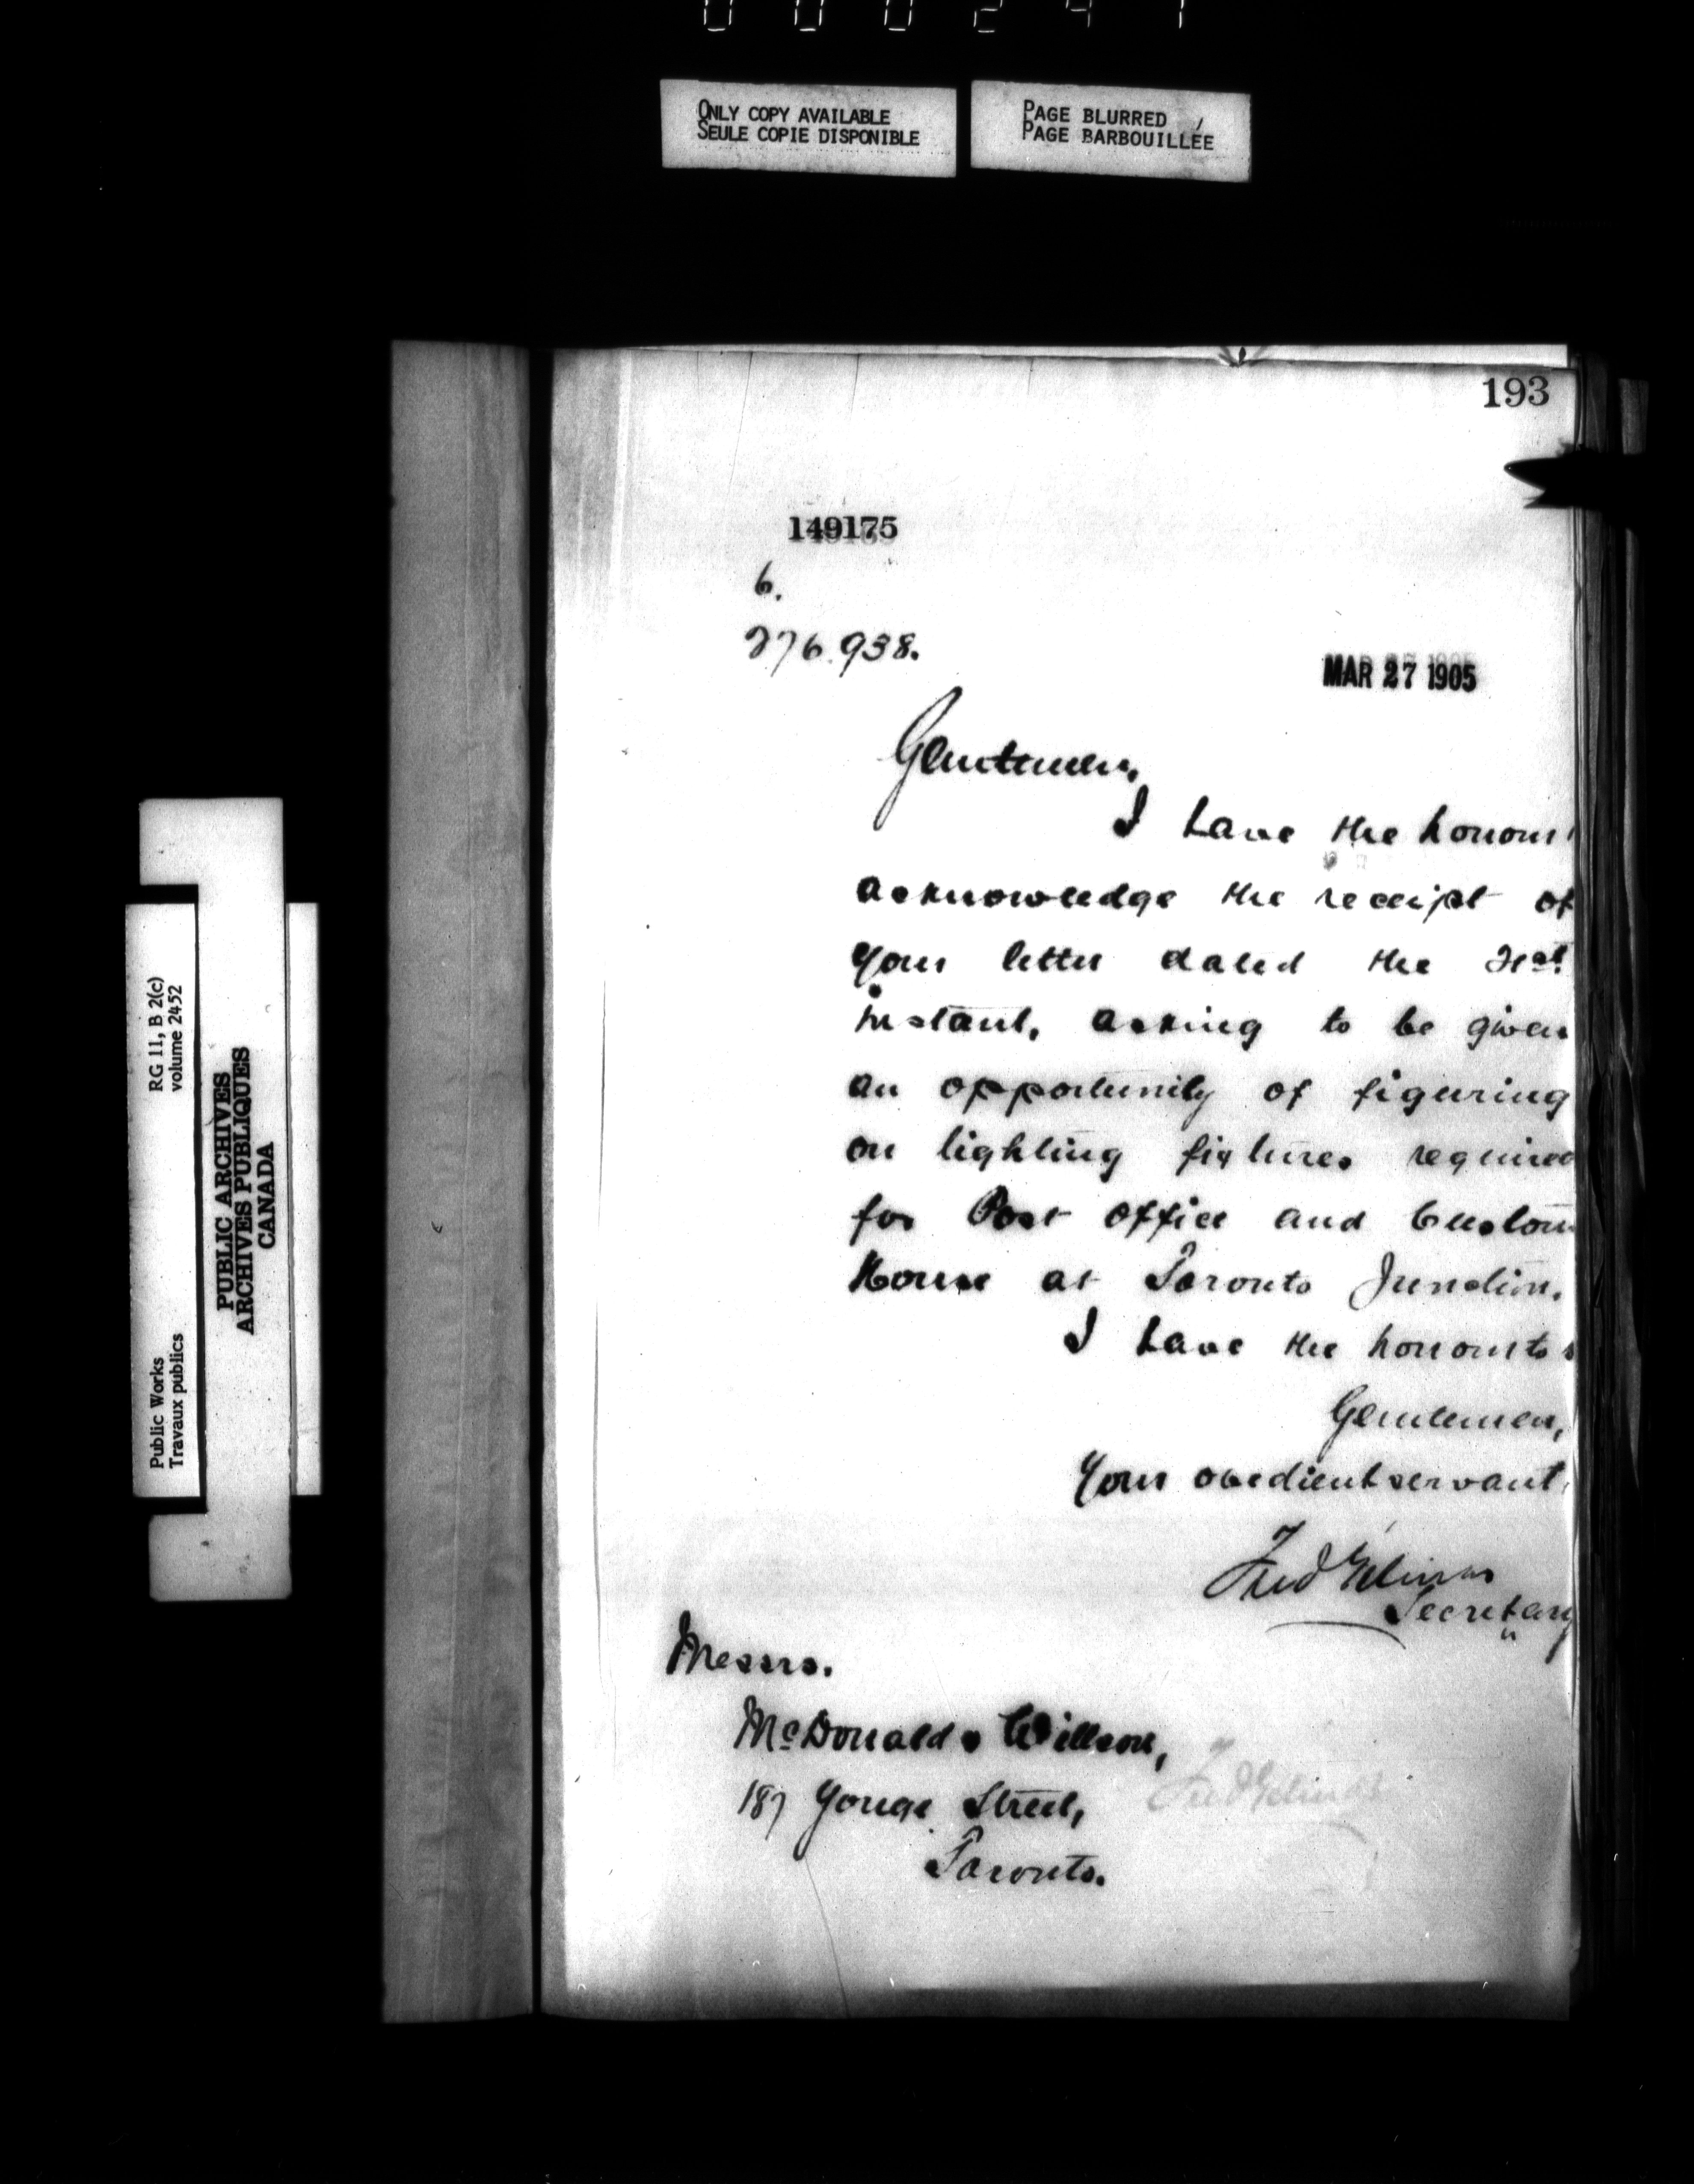 ONLY COPY AVAILABLE
SEULE COPIE DISPONIBLE
PAGE BLURRED
PAGE BARBOUILLÉE
193
149175
6.
276.938.
MAR 27 1905
Gentlemen,
I have the honour
acknowledge the receipt of
your letter dated the 21st
instant, asking to be given
an opportunity of figuring
on lighting fixtures required
for Post Office and Custom
House at Toronto Junction.
I have the honour to
Gentlemen,
Your obedient servant,
Fred Gelinas
Secretary
Messrs.
McDonald & Willson,
187 Yonge Street,
Toronto.
Fred Gelinas
Public Works
Travaux publics
RG 11, B 2(c)
volume 2452
PUBLIC ARCHIVES
ARCHIVES PUBLIQUES
CANADA